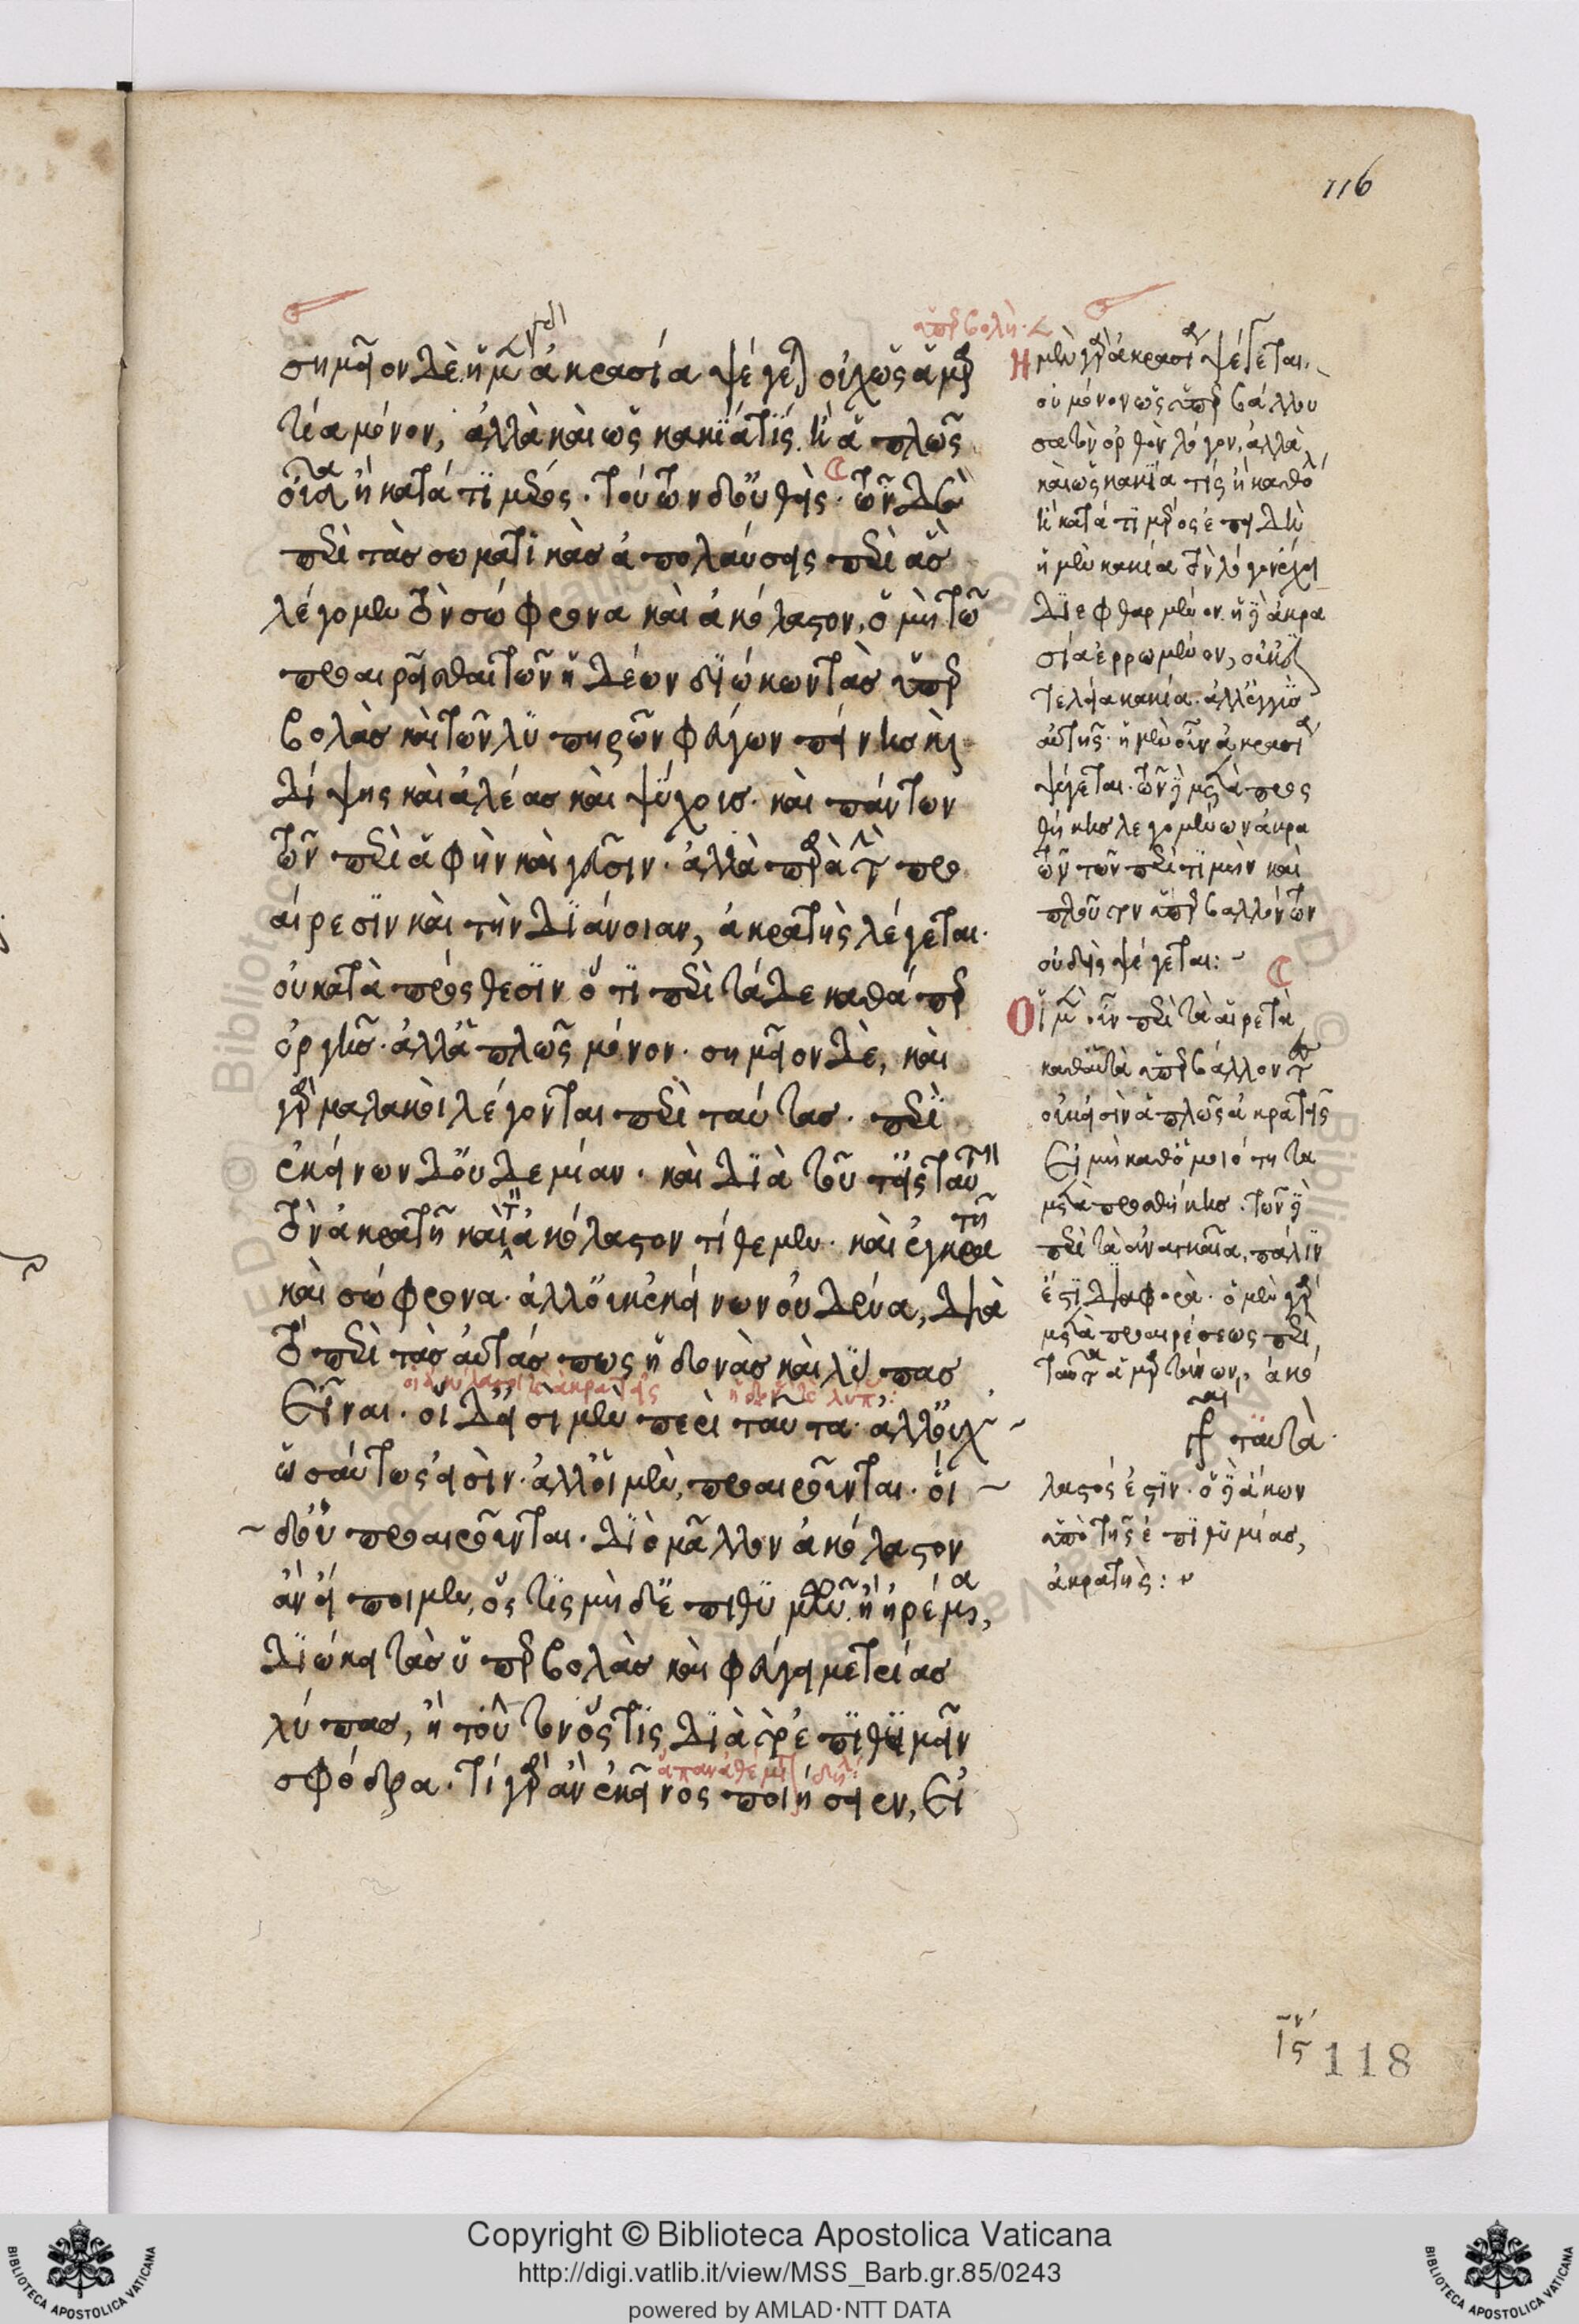 116
σημεῖον δέ· ἡ μὲν γὰρ ἀκρασία ψέγεται οὐχ ὡς ἁμαρ
τία μόνον, ἀλλὰ καὶ ὡς κακία τίς. ἢ ἁπλῶς
οὖσα ἢ κατά τι μέρος· τούτων δ' οὐθείς· τῶν δὲ
περὶ τὰς σωματικὰς ἀπολαύσεις περὶ ἃς
λέγομεν τὸν σώφρονα καὶ ἀκόλαστον, ὁ μὴ τῶ
προαιρεῖσθαι τῶν ἡδέων διώκων τὰς ὑπερ
βολὰς καὶ τῶν λυπηρῶν φεύγων πείνης καὶ
δίψης καὶ ἀλέας καὶ ψύχους· καὶ πάντων
τῶν περὶ ἁφὴν καὶ γεῦσιν· ἀλλὰ παρὰ τὴν προ
αίρεσιν καὶ τὴν διάνοιαν, ἀκρατὴς λέγεται·
οὐ κατὰ πρόσθεσιν ὅτι περὶ τάδε καθάπερ
ὀργῆς· ἀλλ' ἁπλῶς μόνον· σημεῖον δέ, καὶ
γὰρ μαλακοὶ λέγονται περὶ ταύτας· περὶ
ἐκείνων δ' οὐδεμίαν· καὶ διὰ τοῦτ' εἰς ταυτὴ
τὸν ἀκρατῆ καὶ τὸν ἀκόλαστον τίθεμεν· καὶ ἐγκρατῆ
καὶ σώφρονα· ἀλλ' οὐκ ἐκείνων οὐδένα, διὰ
τὸ περὶ τὰς αὐτάς πως ἡδονὰς καὶ λύπας
εἶναι· οἱ δ' εἰσὶ μὲν περὶ ταῦτα· ἀλλ' οὐχ
ὡσαύτως εἰσίν· ἀλλ' οἱ μὲν, προαιροῦνται· οἱ
δ' οὐ προαιροῦνται· διὸ μᾶλλον ἀκόλαστον
ἂν εἴποιμεν, ὅστις μὴ δ' ἐπιθυμῶν ἢ ἠρέμα,
διώκει τὰς ὑπερβολὰς καὶ φεύγει μετρίας
λύπας, ἢ τοῦτον ὅστις διὰ τὸ ἐπιθυμεῖν
σφόδρα· τί γὰρ ἂν ἐκεῖνος ποιήσειεν, εἰ
ὑπερβολὴ
Ἡ μὲν γὰρ ἀκρασία ψέγεται
οὐ μόνον ὡς ὑπερβάλλου
σα τὸν ὀρθὸν λόγον, ἀλλὰ
καὶ ὡς κακία τίς ἢ καθόλου
ἢ κατά τι μέρος ἐπειδὴ
ἡ μὲν κακία τὸν λόγον ἔχει
διεφθαρμένον. ἡ δὲ ἀκρα
σία ἐρρωμένον, οὐκ ἔστι
τελεία κακία· ἀλλ' ἐγγὺς
αὐτῆς· ἡ μὲν οὖν ἀκρασία
ψέγεται· τῶν δὲ μετὰ προσ
θήκης λεγομένων ἀκρα
τῶν τῶν περὶ τιμὴν καὶ
πλοῦτον ὑπερβαλλόντων
οὐδεὶς ψέγεται:
Οἱ μὲν οὖν περὶ τὰ αἱρετὰ
καθαυτὰ ὑπερβάλλοντες
οὐκ εἰσὶν ἁπλῶς ἀκρατεῖς
εἰ μὴ καθ' ὁμοιότητα
μετὰ προσθήκης· τῶν δὲ
περὶ τὰ ἀναγκαῖα, πάλιν
ἔστι διαφορὰ· ὁ μὲν γὰρ
μετὰ προαιρέσεως περὶ
ταῦτα ἁμαρτάνων, ἀκό
λαστός ἐστιν· ὁ δὲ ἄκων
ὑπὸ τῆς ἐπιθυμίας,
ἀκρατής:
118
Copyright © Biblioteca Apostolica Vaticana
http://digi.vatlib.it/view/MSS_Barb.gr.85/0243
powered by AMLAD·NTT DATA